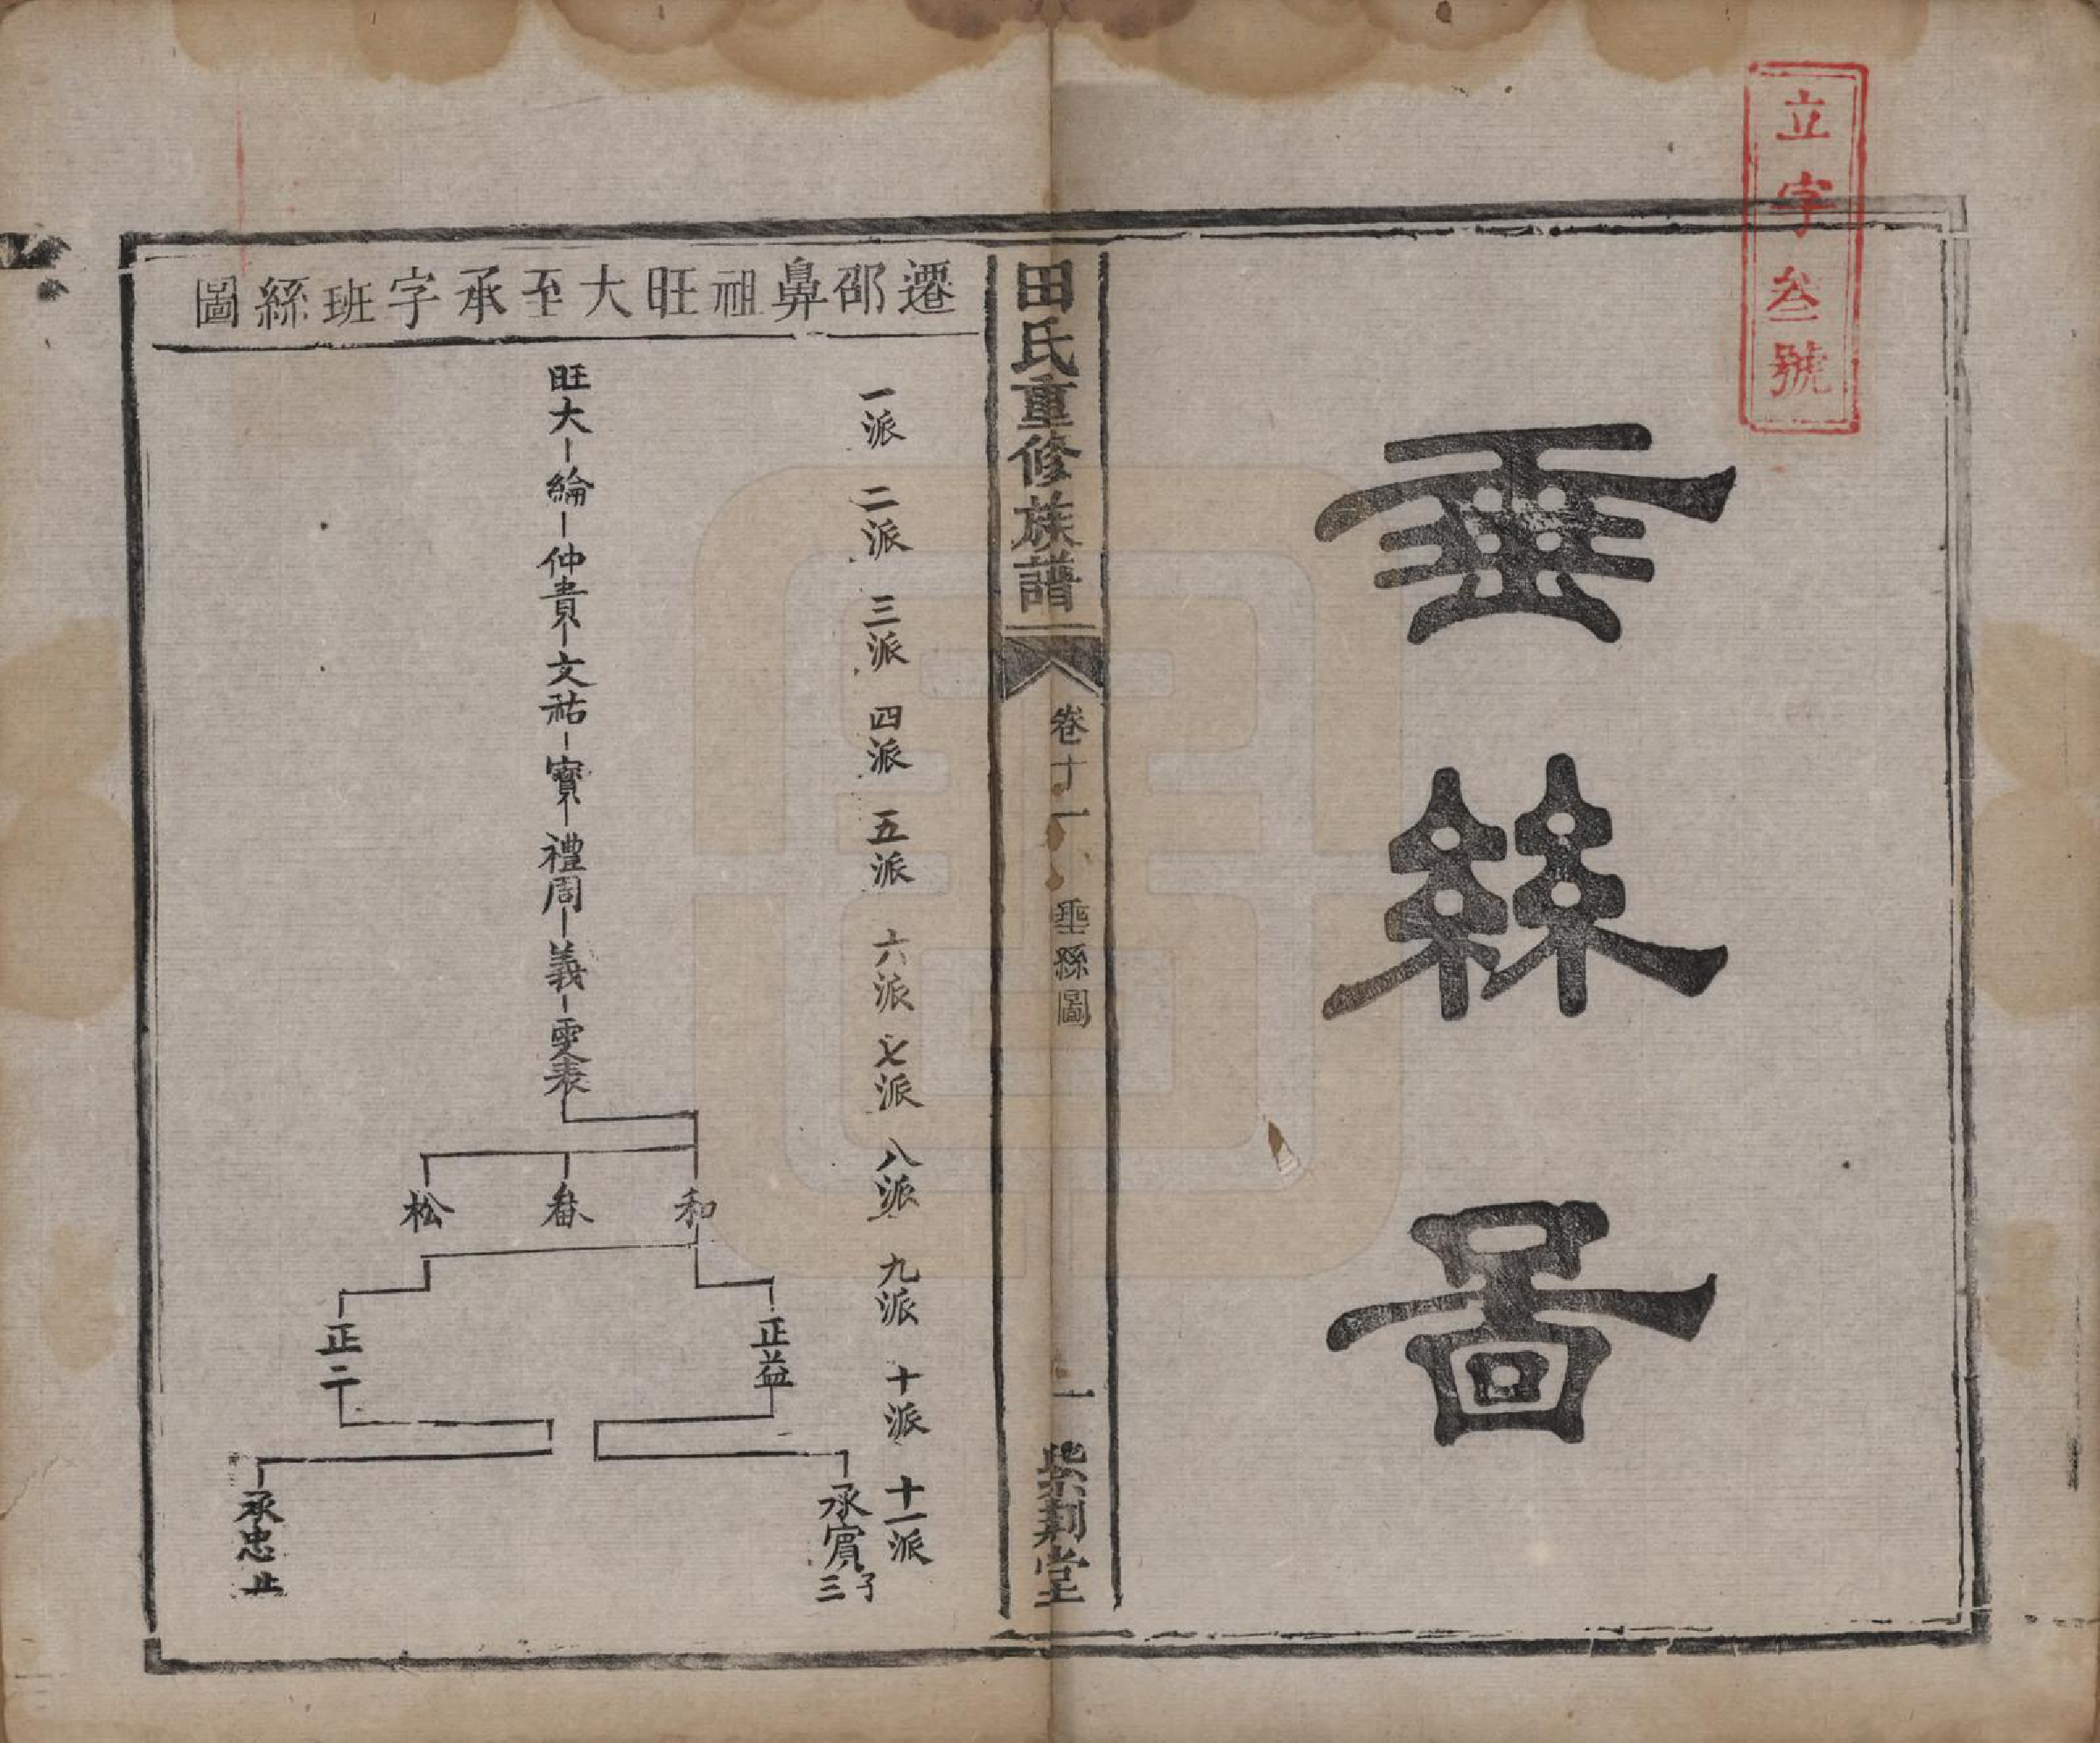 立字叁號
垂絲圖
田氏重修族譜
卷十一
垂絲圖
一
紫荆堂
遷邵鼻祖旺大至承字班絲圖
一派 二派 三派 四派 五派 六派 七派 八派 九派 十派 十一派
旺大
綸
仲貴
文祐
寳
禮周
義
受表
和
松
正益
正二
承賔 子三
承忠 止